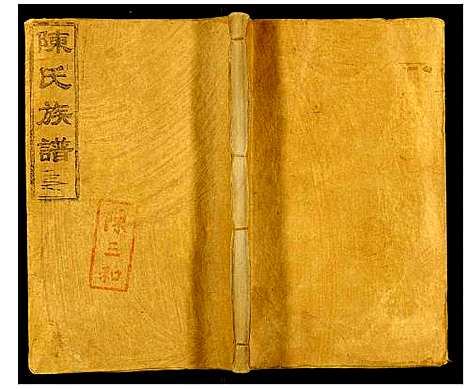 陳氏族譜
陳三和